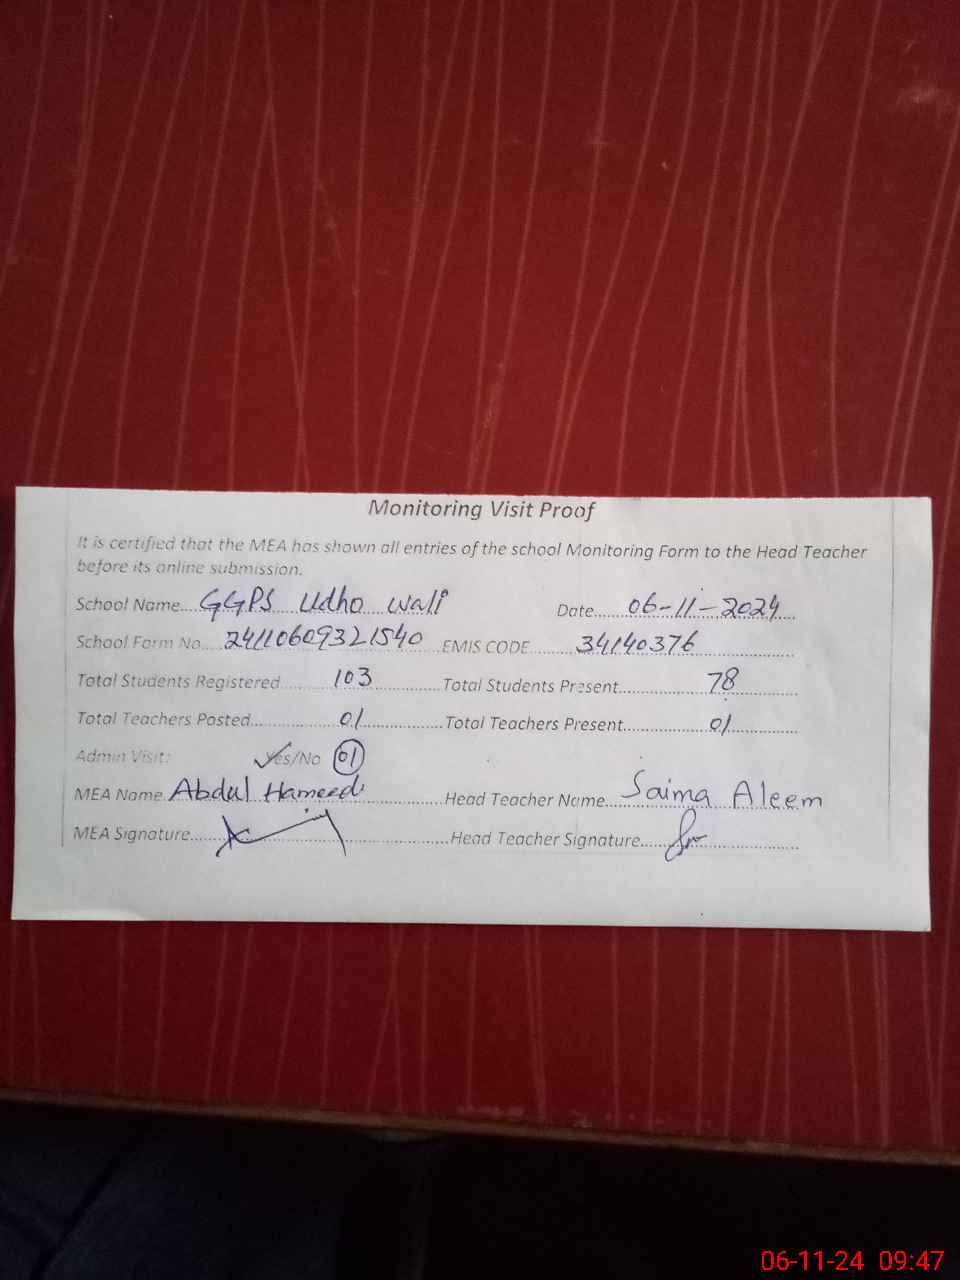 Monitoring Visit Proof
It is certified that the MEA has shown all entries of the school Monitoring Form to the Head Teacher
before its online submission.
School Name.....GGPS Udho Wali Date.....06-11-2024
School Form No.....24110609321540 EMIS CODE.....34140376
Total Students Registered.....103 Total Students Present.....78
Total Teachers Posted.....01 Total Teachers Present.....01
Admin Visit: Yes/No 01
MEA Name Abdul Hameed Head Teacher Name.....Saima Aleem
MEA Signature..... Head Teacher Signature.....
06-11-24 09:47